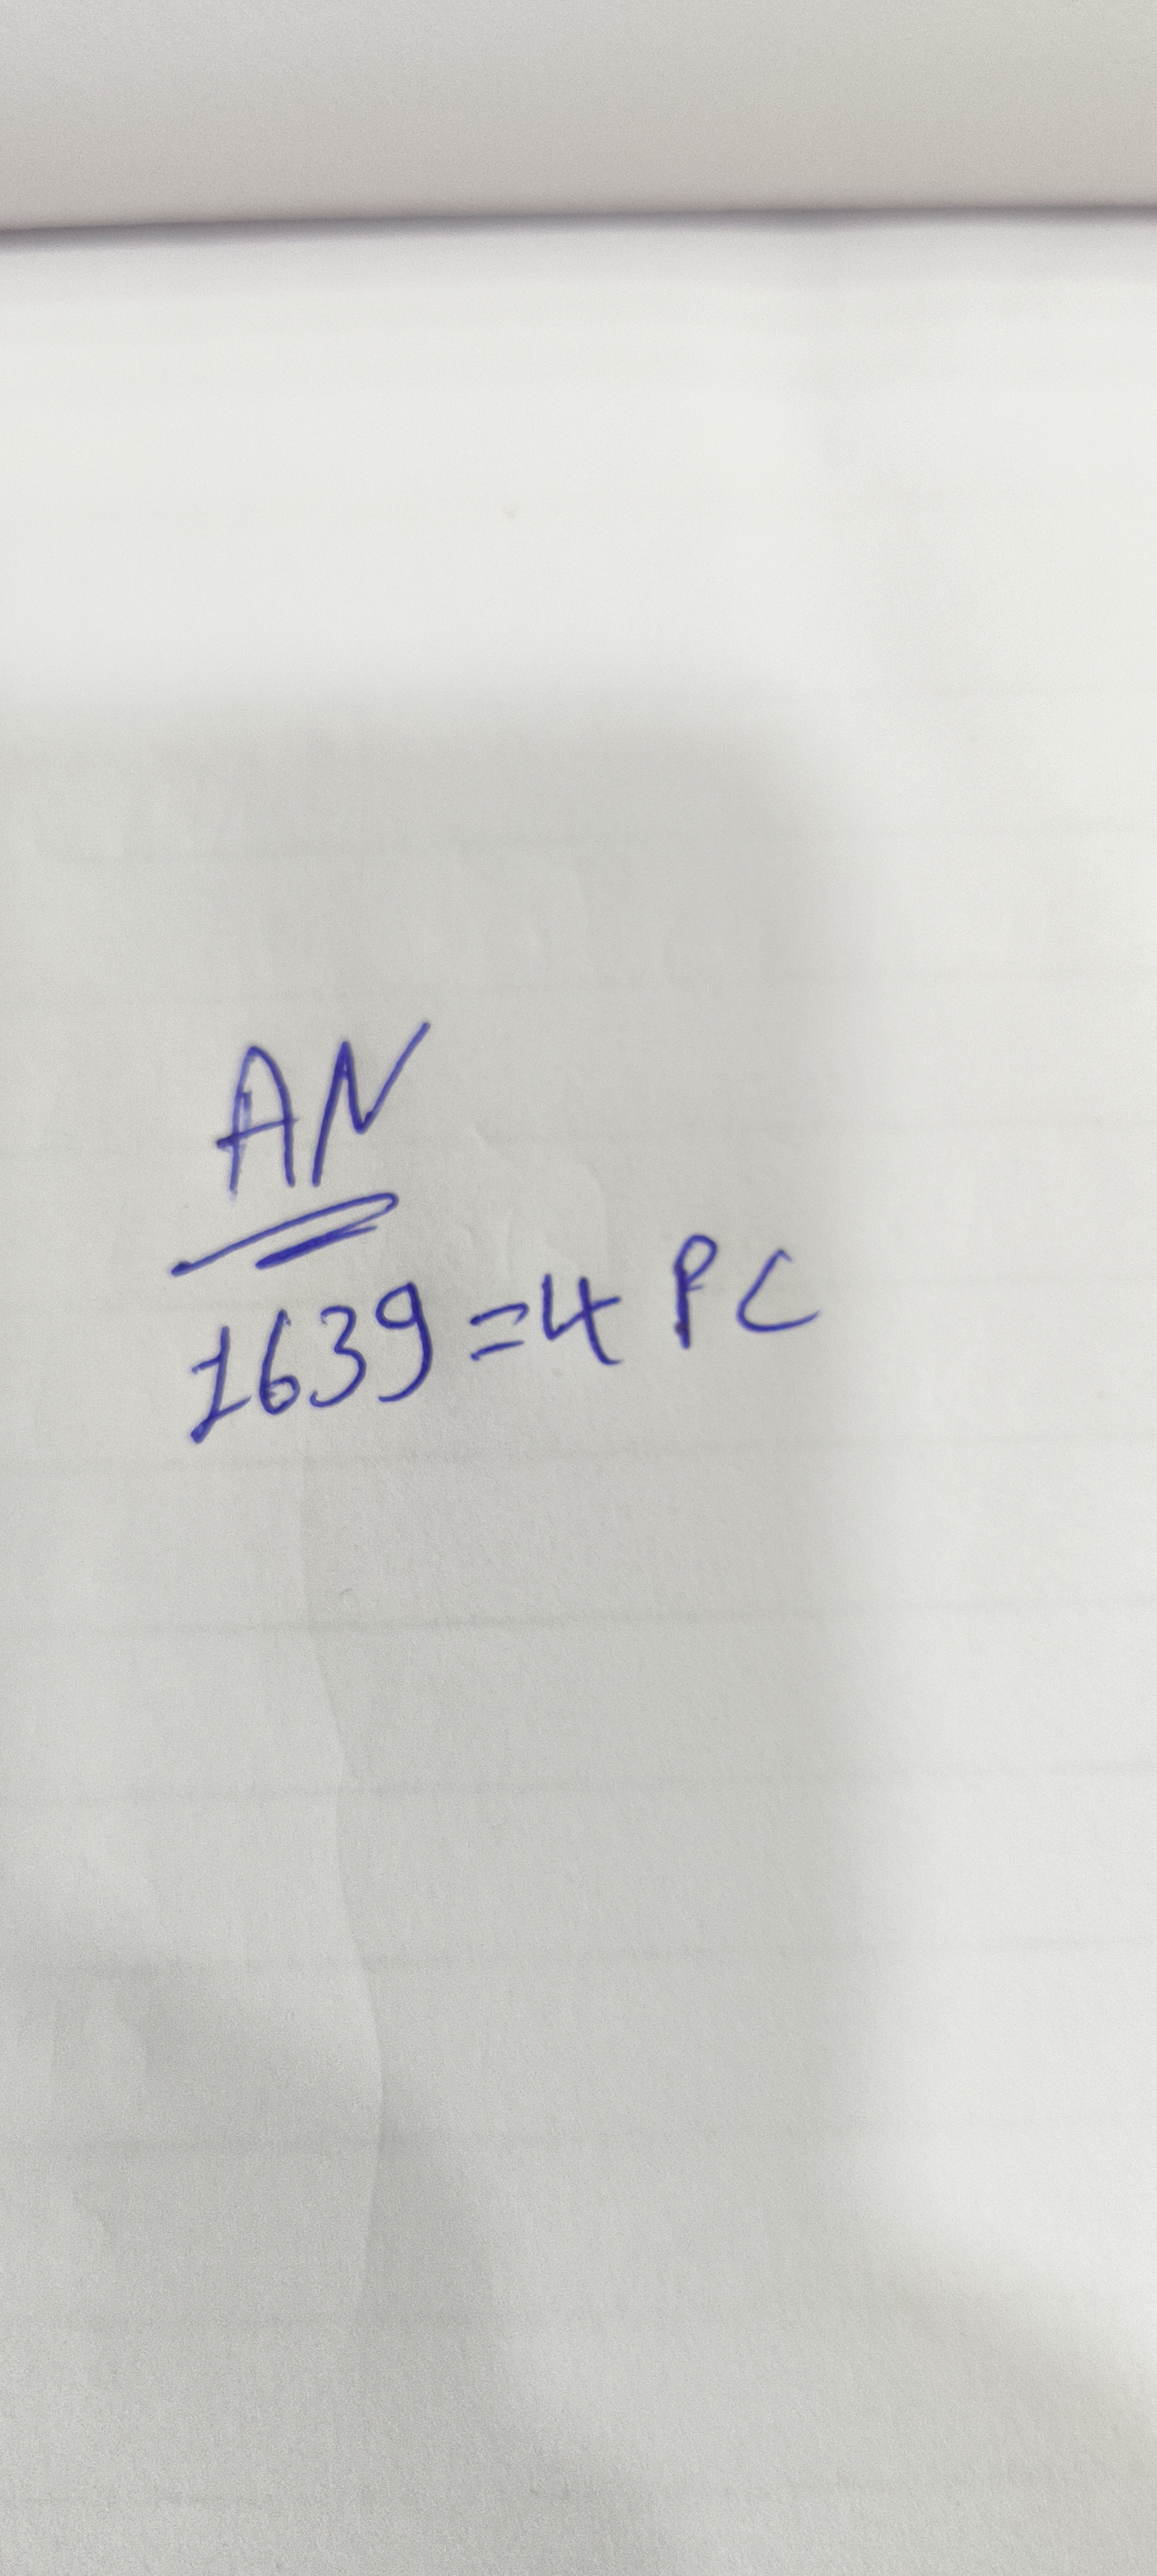 AN
1639=4 PC